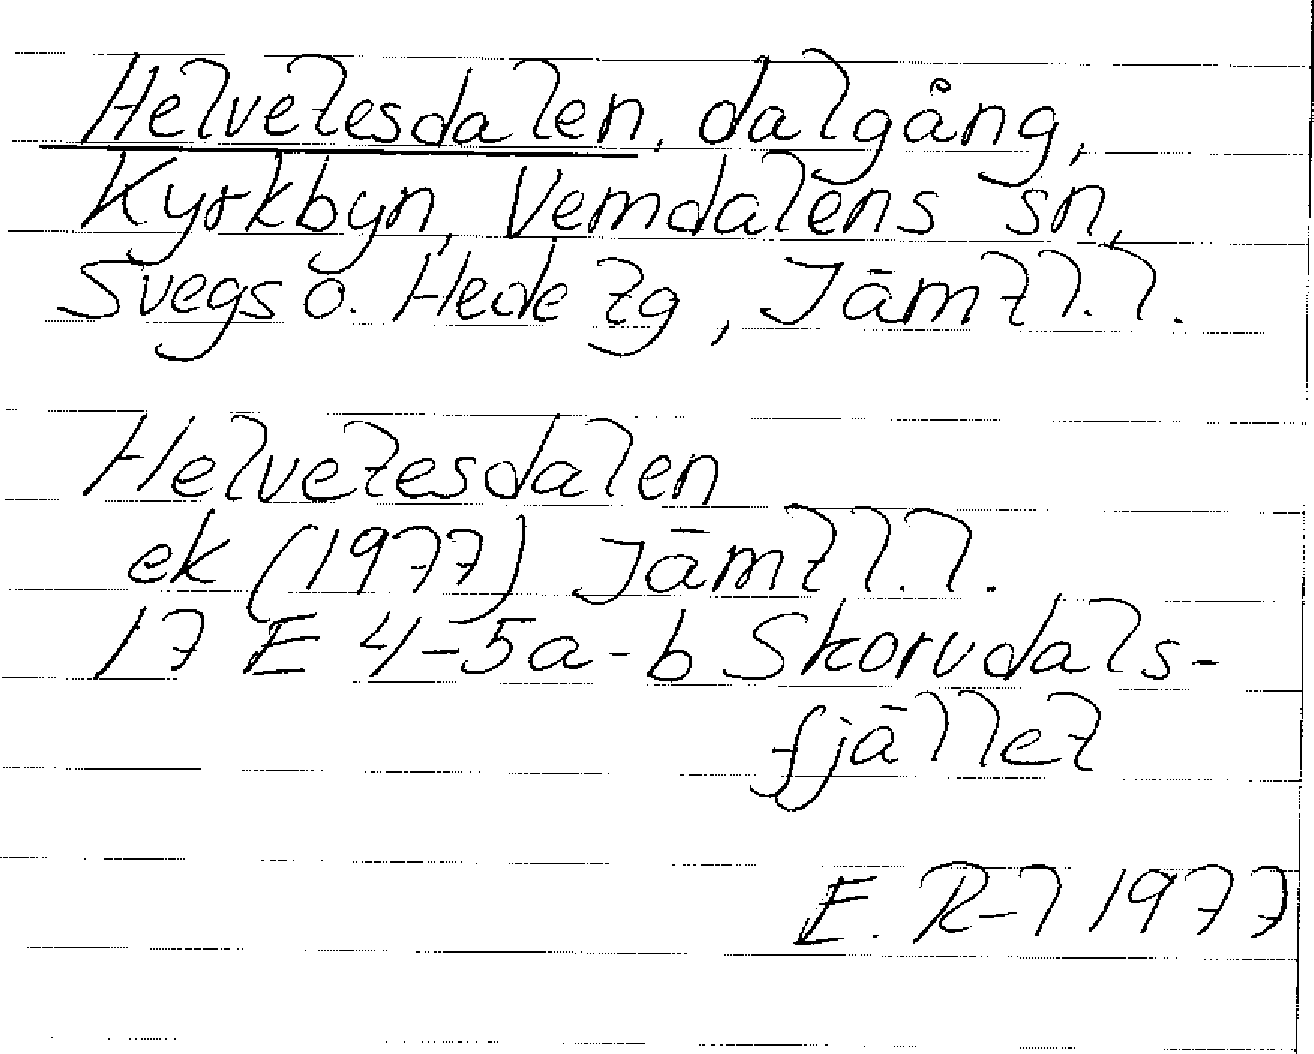 Helvetesdalen, dalgång,
Kyrkbyn, Vemdalens sn,
Svegs o. Hede tg, Jämtl. l.
Helvetesdalen
ek (1977) Jämtl. l.
17 E 4-5a-b Skorvdals-
fjället
E. R-l 1977